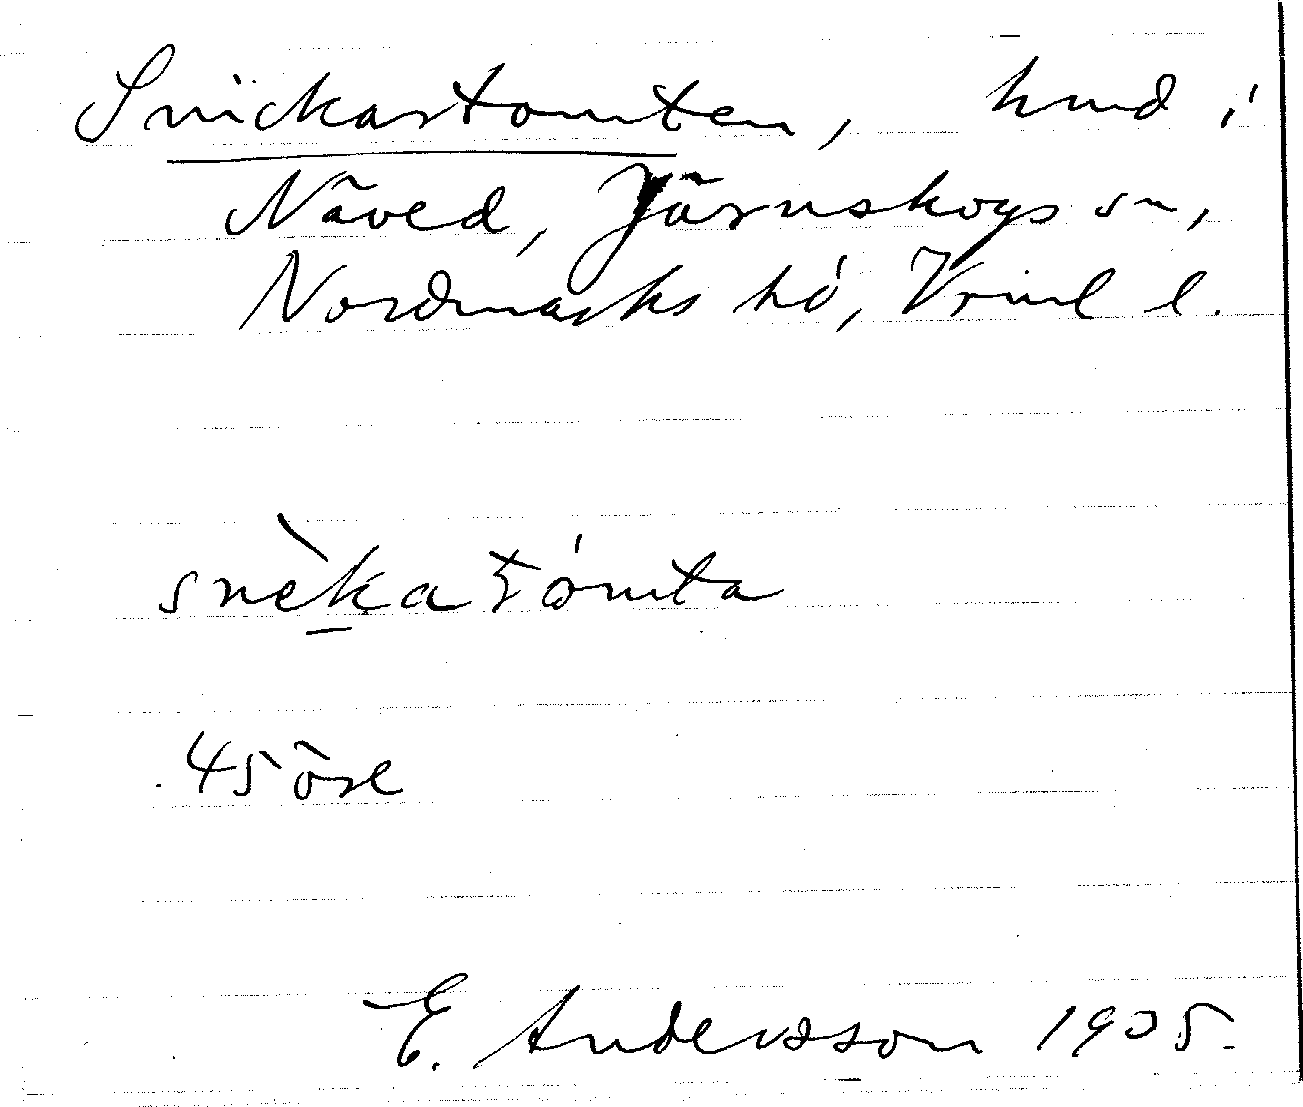 Snickartomten, hmd i
Näved, Järnskogs sn,
Nordmarks hd, Vrml l.
snèkatómta
45 öre
E. Andersson 1905.